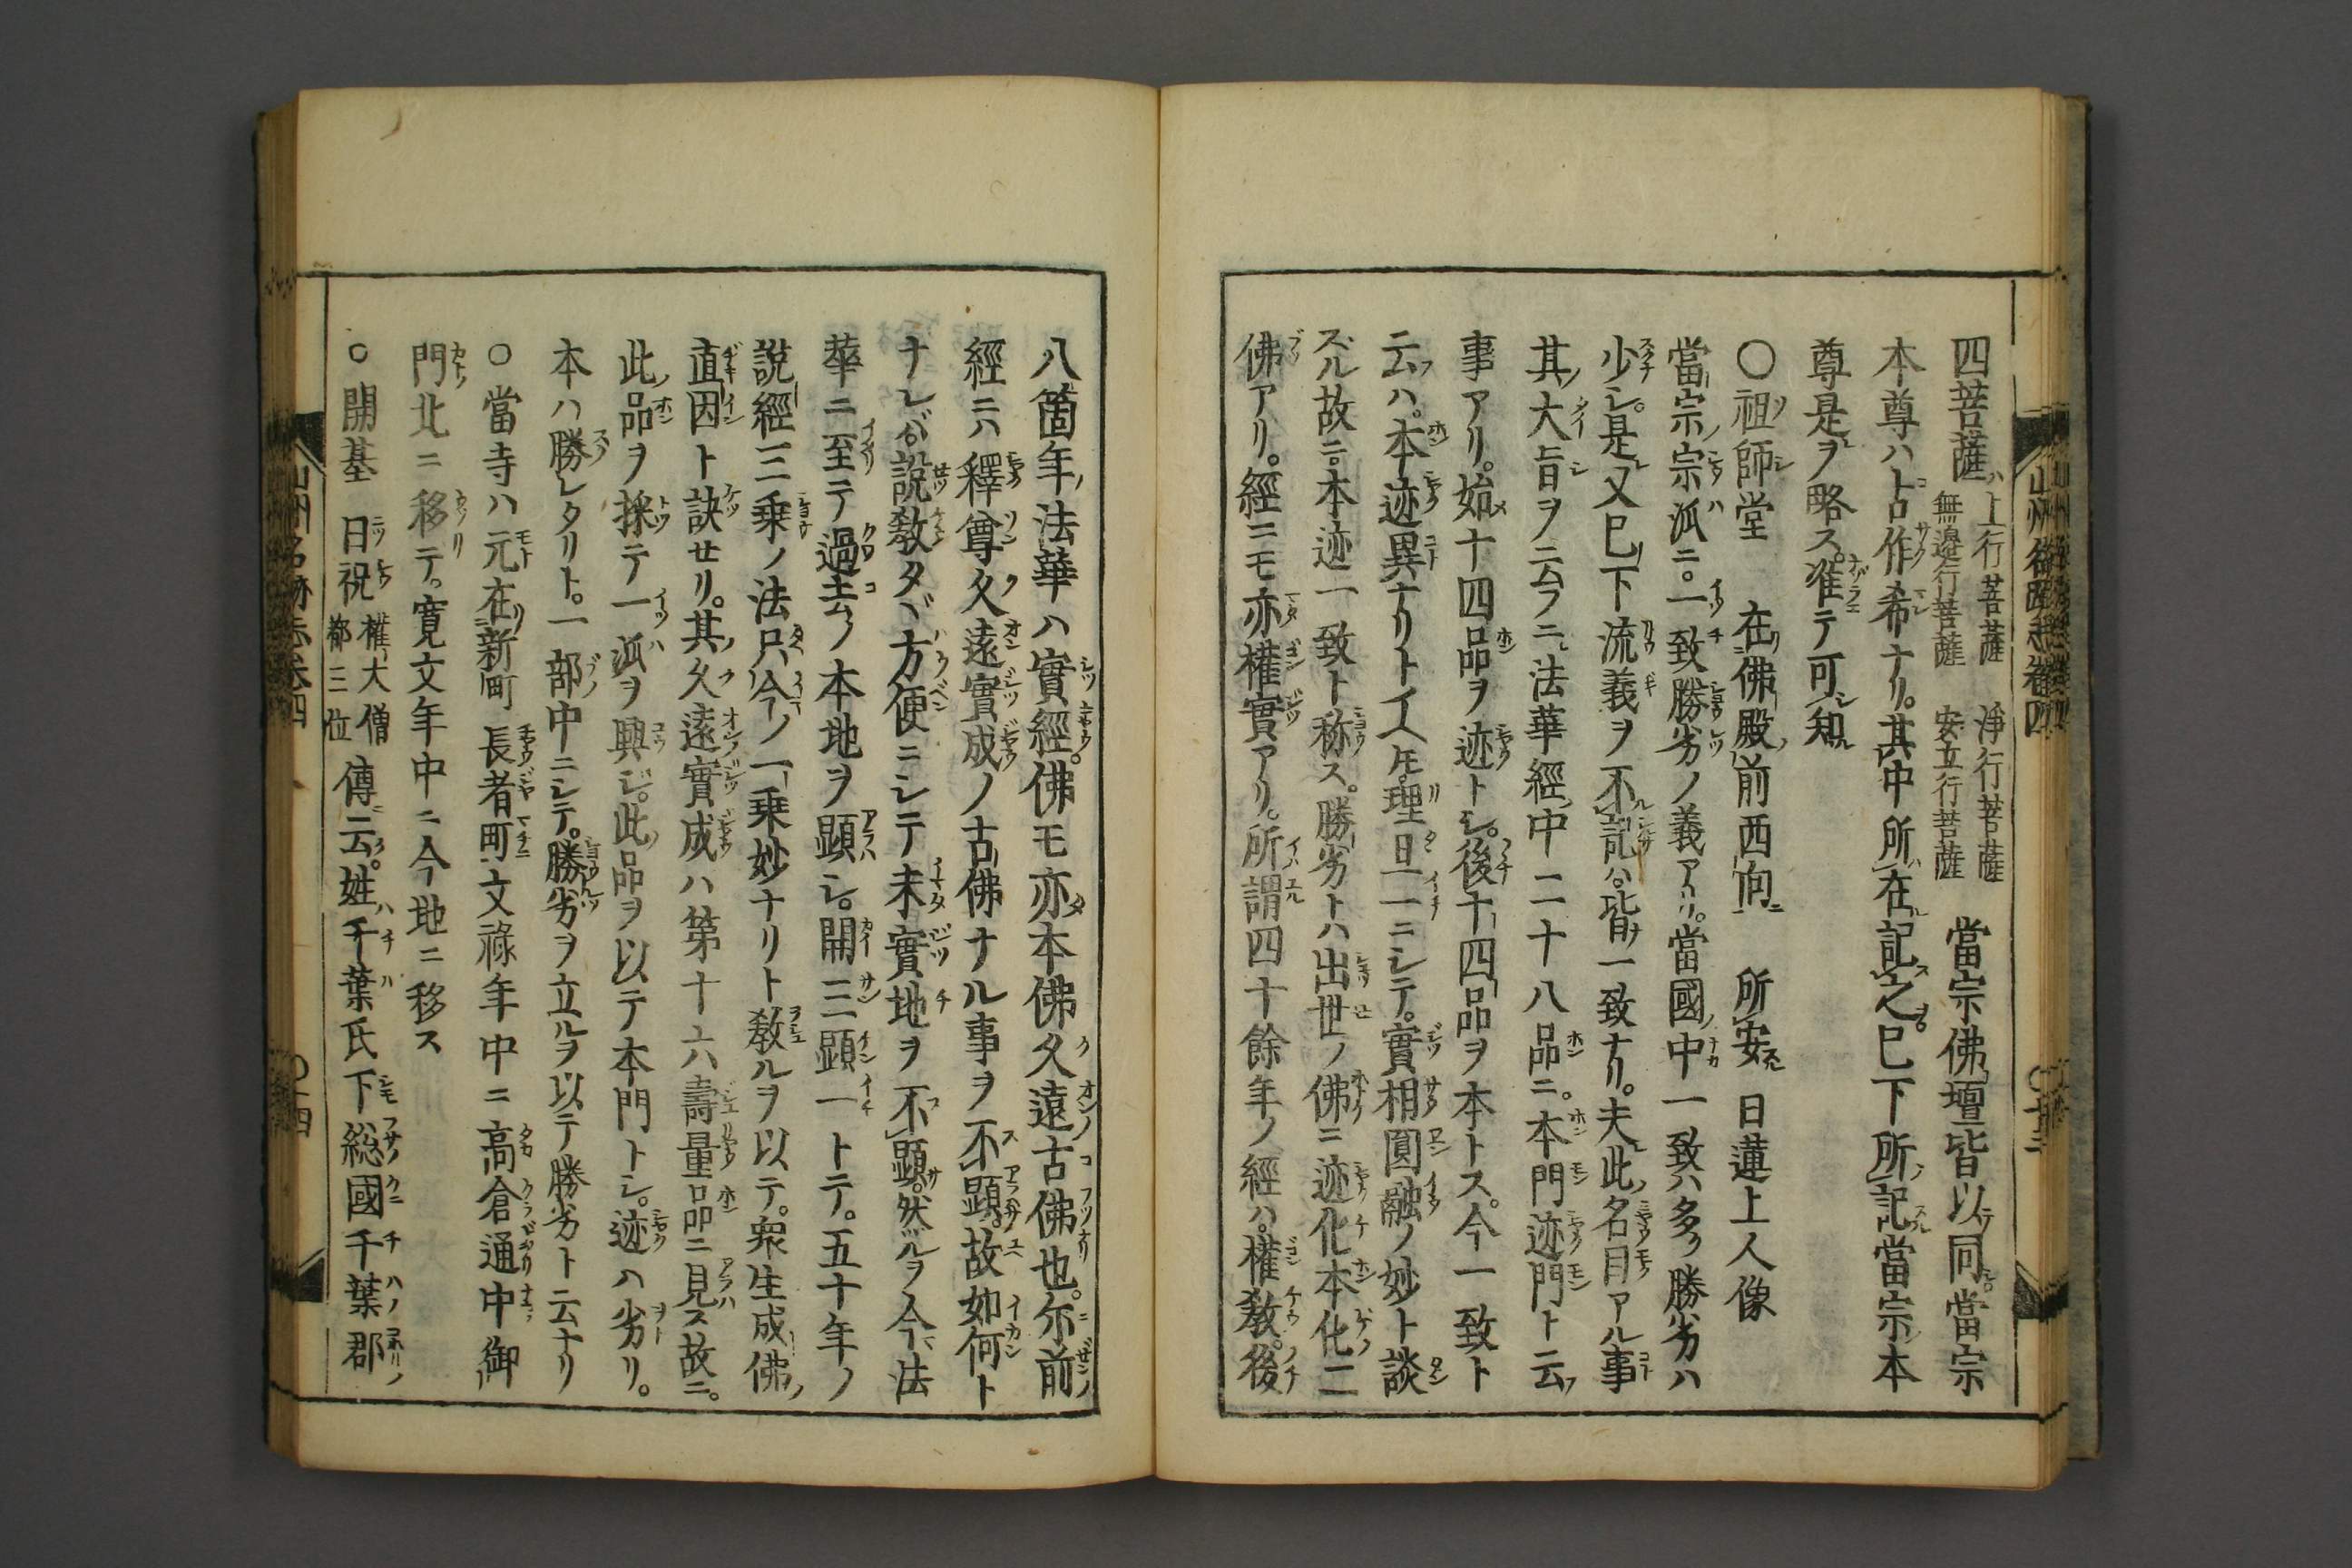 四菩薩 上行菩薩 淨行菩薩 無邊行菩薩 安立行菩薩 當宗佛壇皆以同當宗
本尊ハト古作希ナリ。其中所在記之已下所記當宗本
尊是ヲ略ス。准テ可知
〇祖師堂 在佛殿前西向 所安 日蓮上人像
當宗宗派ニ。一致勝劣ノ義アリ。當國中一致ハ多ク勝劣ハ
少シ。是又已下流義ヲ不記ハ。皆一致ナリ。夫此名目アル事
其大旨ヲ云フニ。法華經中二十八品ニ。本門迹門ト云
事アリ。始十四品ヲ迹トシ。後十四品ヲ本トス。今一致ト
云ハ。本迹異ナリトイヘ𪜈。理旦一ニシテ。實相圓融ノ妙ト談
ズル故ニ。本迹一致ト称ス。勝劣トハ出世ノ佛ニ迹化本化二
佛アリ。經ニモ亦權實アリ。所謂四十餘年ノ經ハ。權教。後
八箇年法華ハ實經。佛モ亦本佛久遠古佛也。尓前
經ニハ釋尊久遠實成ノ古佛ナル事ヲ不顕。故如何ト
ナレバ。説教タヾ方便ニシテ未實地ヲ不顕。然ルヲ今法
華ニ至テ過去ノ本地ヲ顕シ。開三顕一トテ。五十年ノ
説經三乗ノ法只今ノ一乗妙ナリト教ルヲ以テ。衆生成佛
直因ト訣セリ。其久遠實成ハ第十六壽量品ニ見ス故ニ。
此品ヲ採テ一派ヲ興シ。此品ヲ以テ本門トシ。迹ハ劣リ。
本ハ勝レタリト。一部中ニシテ。勝劣ヲ立ルヲ以テ勝劣ト云ナリ
〇當寺ハ元在新町長者町文祿年中ニ高倉通中御
門北ニ移テ。寛文年中ニ今地ニ移ス
〇開基 日祝 權大僧都三位 傳云。姓千葉氏下総國千葉郡
山州名跡志卷四